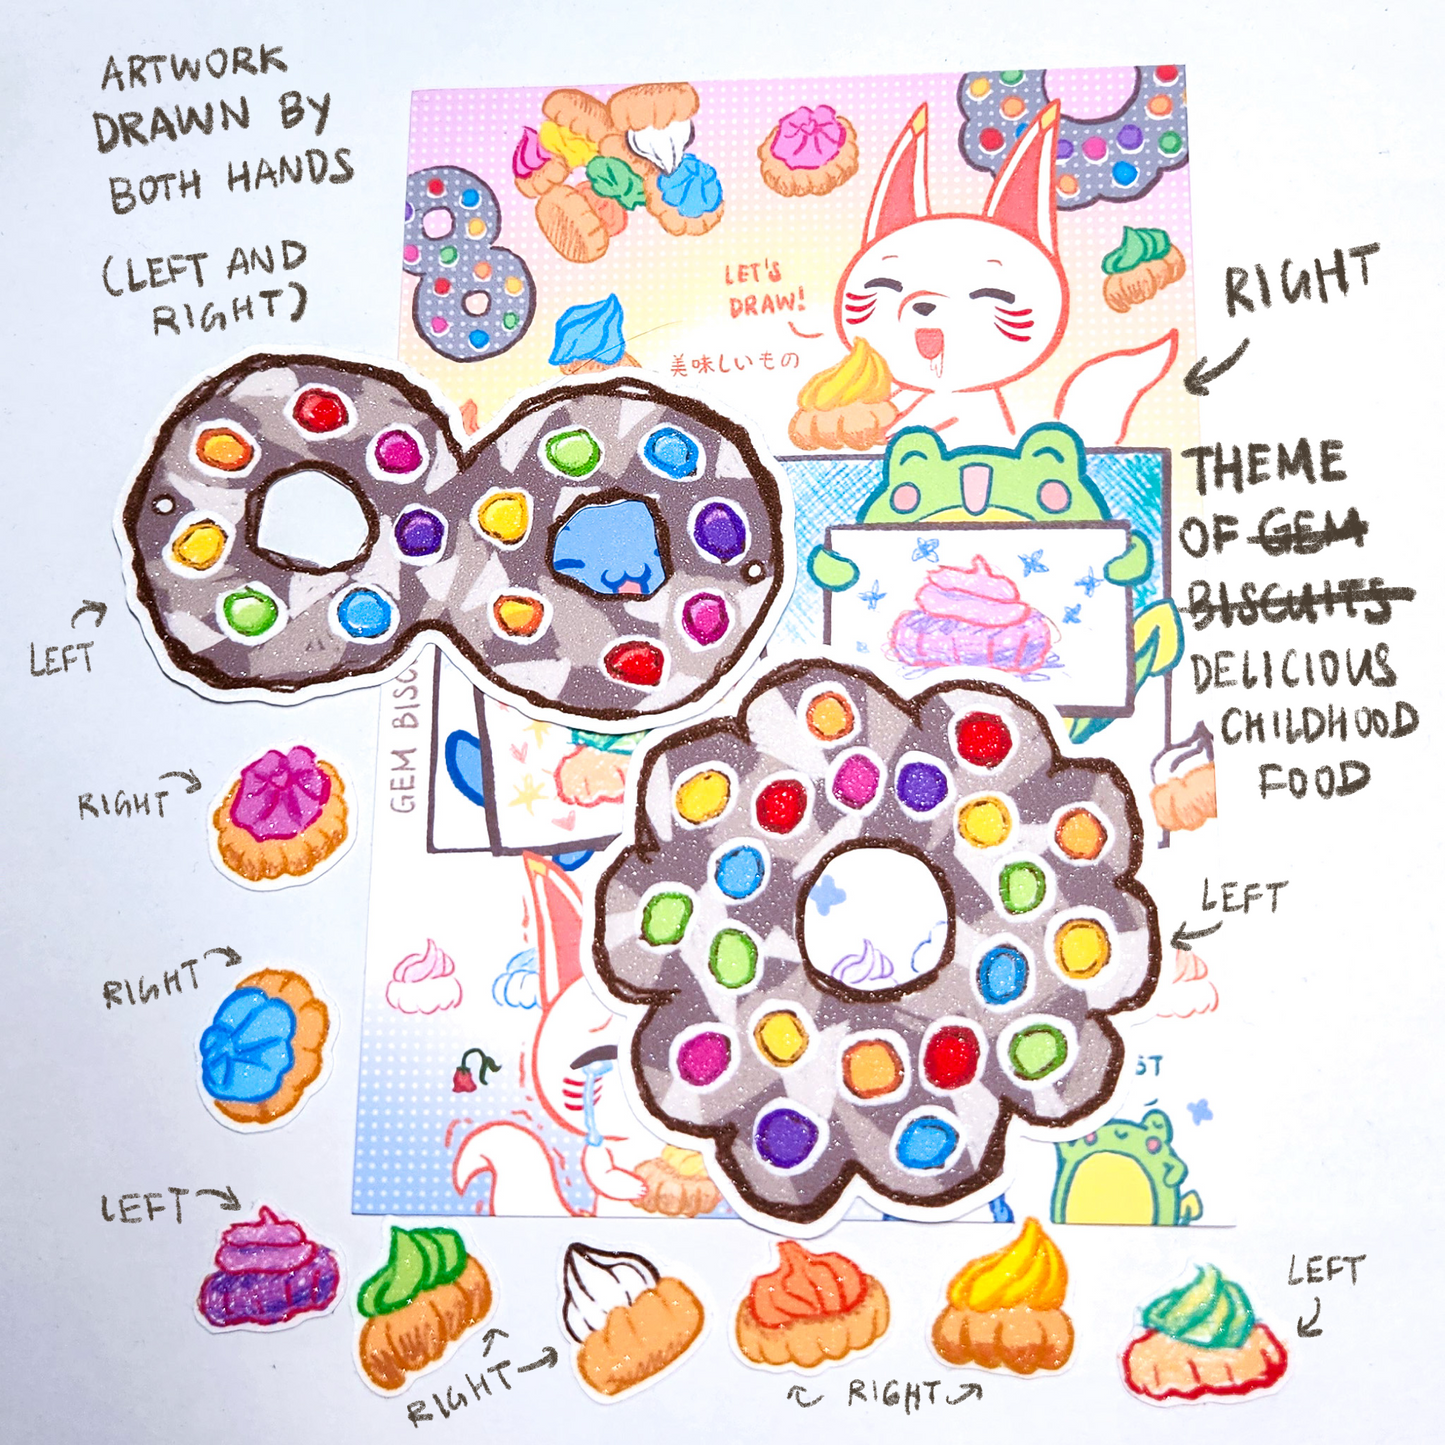 ARTWORK
DRAWN BY
BOTH HANDS
(LEFT AND
RIGHT)
LET'S
DRAW!
美味しいもの
RIGHT
THEME
OF GEM
BISCUITS
DELICIOUS
CHILDHOOD
FOOD
LEFT
GEM BISC
RIGHT
LEFT
RIGHT
ST
LEFT
LEFT
RIGHT
RIGHT